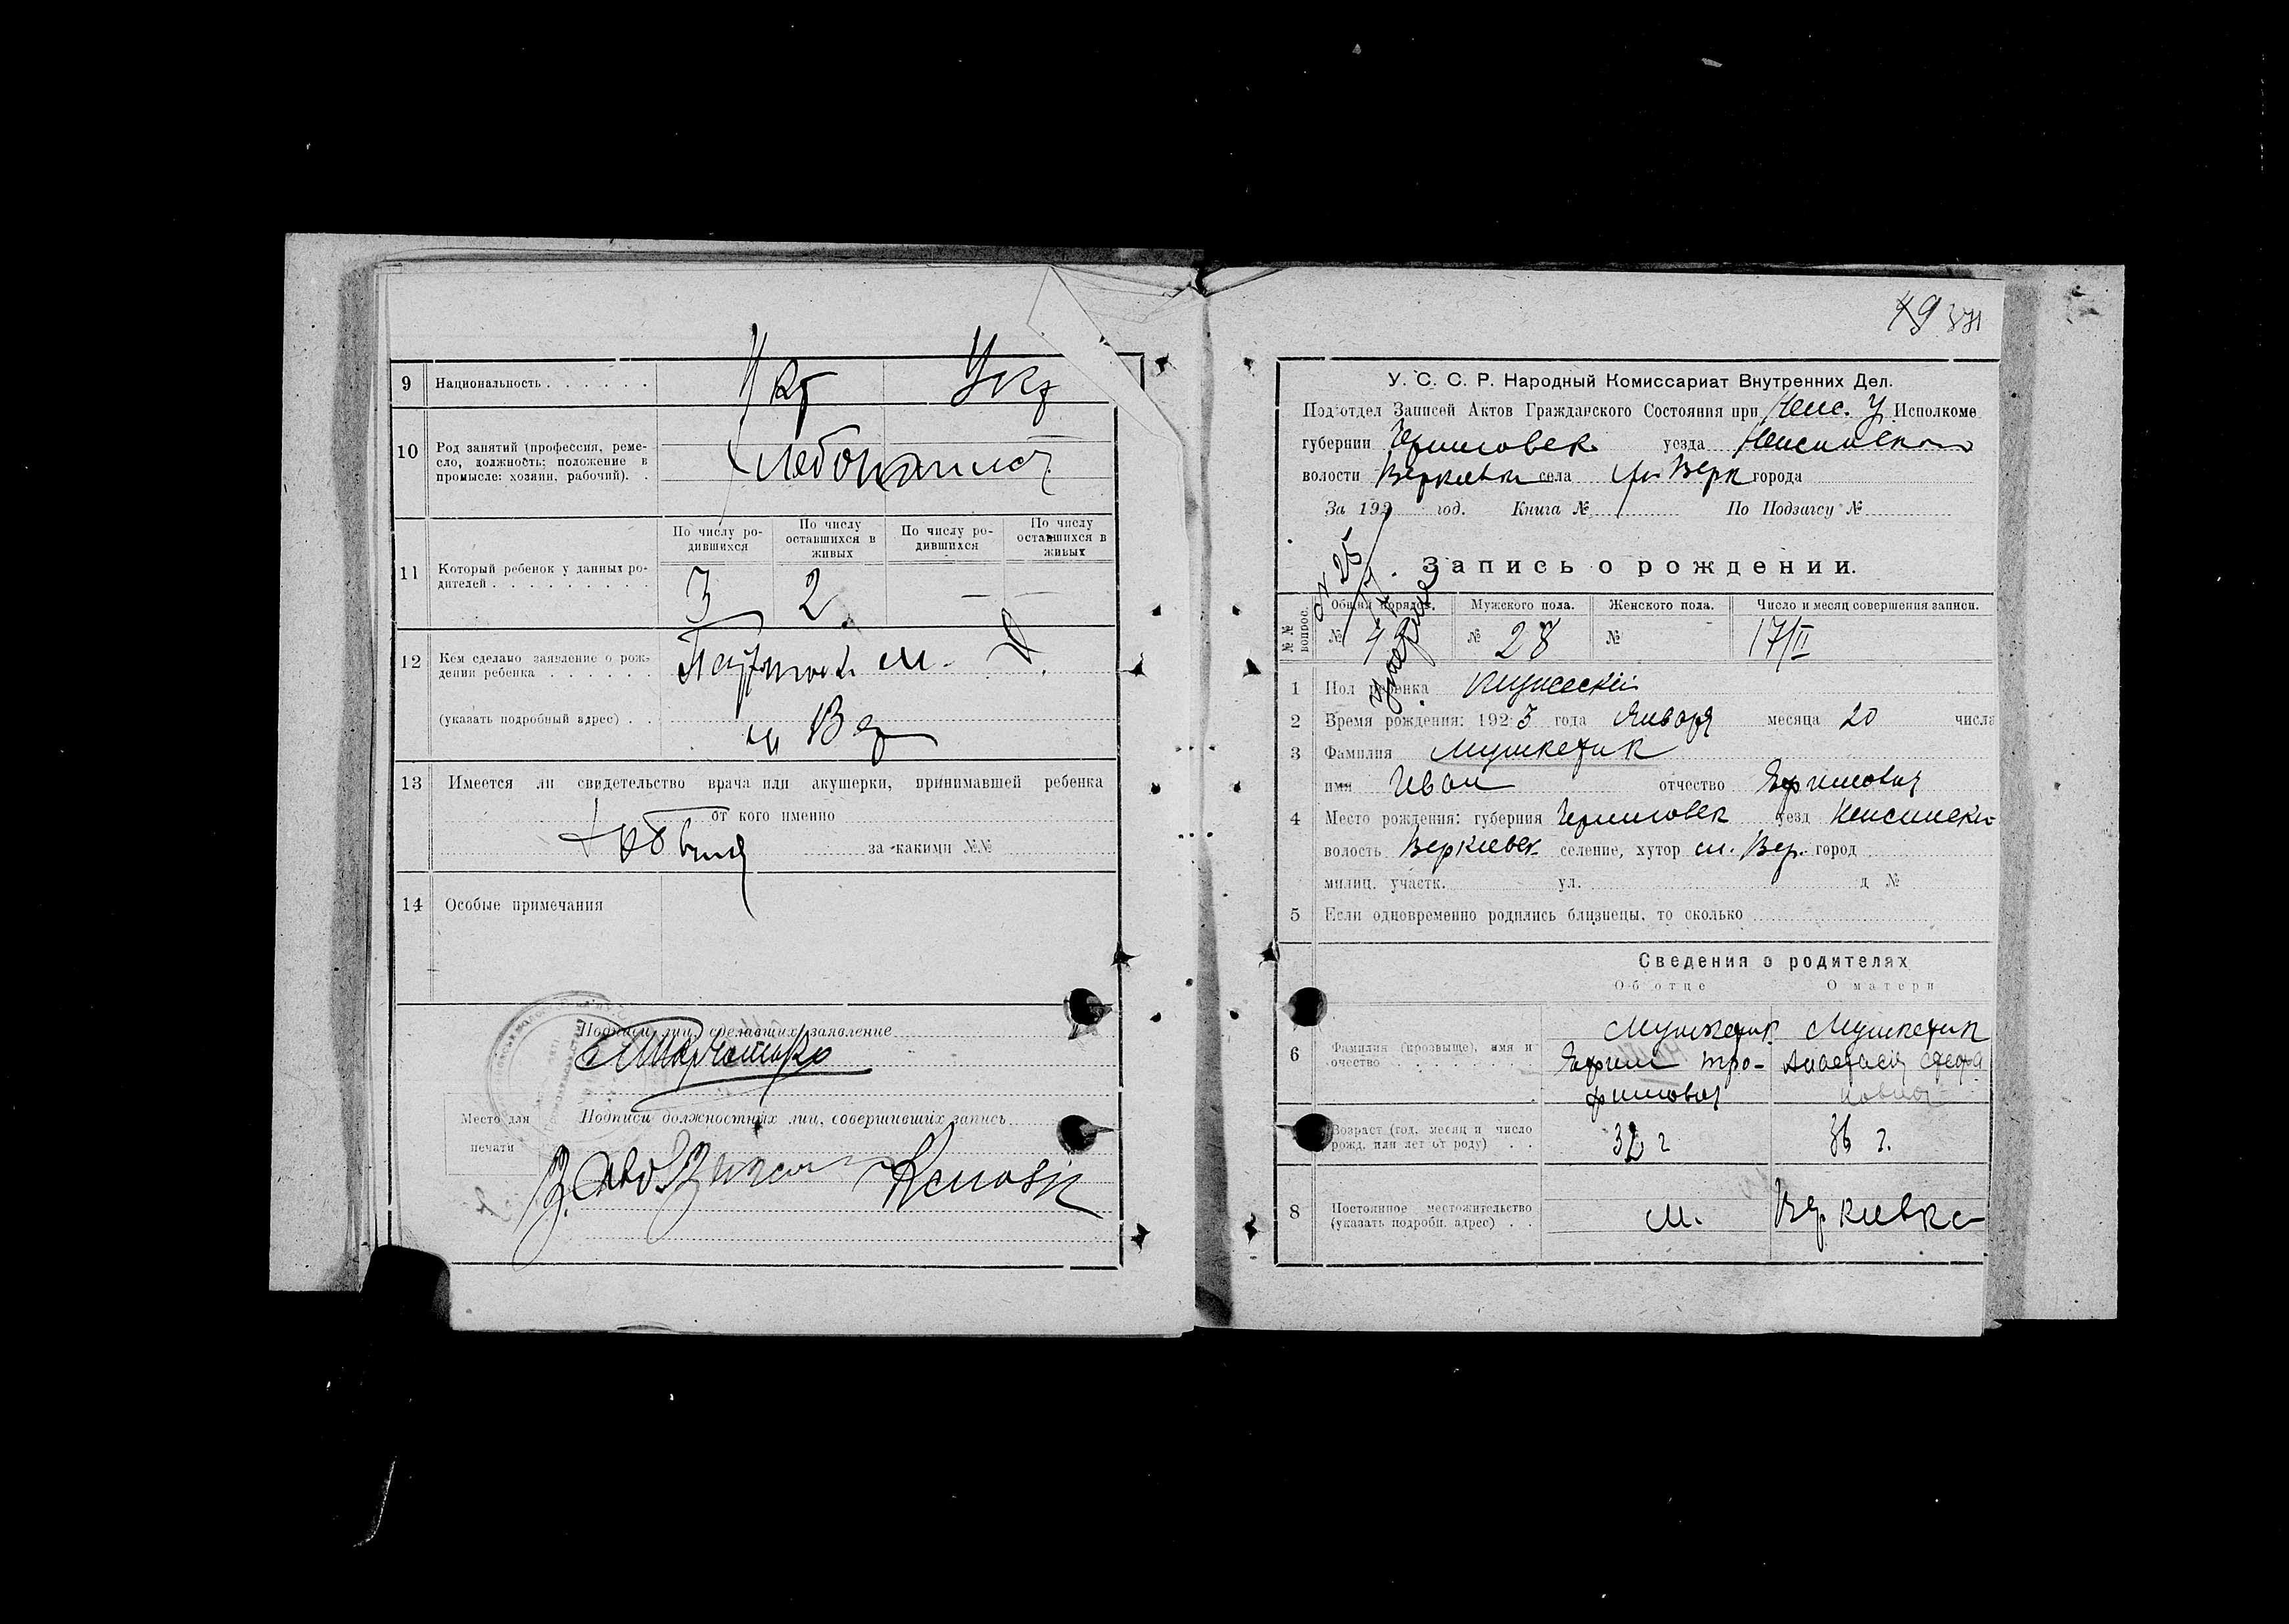 9 Национальность . . . . . . Укр Укр
10 Род занятий (профессия, реме-
сло, должность; положение в
промысле: хозяин, рабочий). . Хлебопашест
По числу ро-
дившихся
По числу
оставшихся в
живых
По числу ро-
дившихся
По числу
оставшихся в
живых
11 Который ребенок у данных ро-
дителей . . . . . . . . . 3 2 — —
12 Кем сделано заявление о рож-
дении ребенка . . . . . .
(указать подробный адрес) . . м Вер
13 Имеется ли свидетельство врача или акушерки, принимавшей ребенка
от кого именно
за какими №№
14 Особые примечания
Подписи лиц, сделавших заявление
Место для
печати
Подписи должностных лиц, совершивших запись
49
У. С. С. Р. Народный Комиссариат Внутренних Дел.
Подотдел Записей Актов Гражданского Состояния при Неж. У Исполкоме
губернии Черниговск уезда Нежинского
волости Веркиевк села м. Верк города
За 192 год. Книга № По Подзагсу №
Запись о рождении.
№№ вопрос.
Общий порядок. Мужского пола. Женского пола. Число и месяц совершения записи.
№ № 28 № 17/II
умерший
1 Пол ребенка Мужеский
2 Время рождения: 1923 года Января месяца 20 числа
3 Фамилия Мушкетик
имя Иван отчество Ефимович
4 Место рождения: губерния Черниговск уезд Нежинский
волость Веркиевск селение, хутор м. Вер. город
милиц. участк. ул. д №
5 Если одновременно родились близнецы, то сколько
Сведения о родителях
Об отце О матери
6 Фамилия (прозвище), имя и
очество . . . . . . . . .
Мушкетик Мушкетик
Ефим Тро-
фимович
Анастасия
Возраст (год, месяц и число
рожд. или лет от роду) . . 32 г 36 г.
8 Постоянное местожительство
(указать подробн. адрес) . . м. Веркиевка